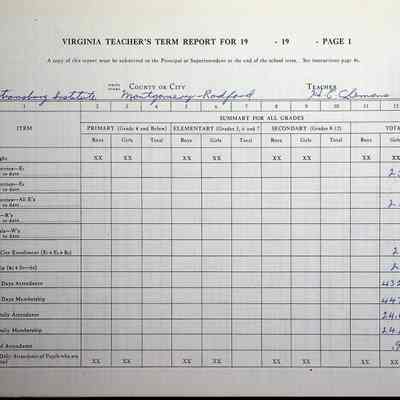 VIRGINIA TEACHER'S TERM REPORT FOR 19 - 19 - PAGE 1
A copy of this report must be submitted to the Principal or Superintendent at the end of the school term. See instructions page 4c.
COUNTY OR CITY TEACHER
Institute Montgomery-Radford H.C. Clemons
1 2 3 4 5 6 7 8 9 10 11 12
ITEM SUMMARY FOR ALL GRADES
PRIMARY (Grade 4 and Below) ELEMENTARY (Grades 5, 6 and 7 SECONDARY (Grades 8-12) TOTA
Boys Girls Total Boys Girls Total Boys Girls Total Boys Girls
XX XX XX XX XX XX XX XX
to date
to date
—All E's
to date
—R's
to date
—W's
to date
City Enrollment
Days Attendance
Days Membership
Daily Attendance
Daily Membership
of Attendance
Daily Attendance of Pupils who are
XX XX XX XX XX XX XX XX